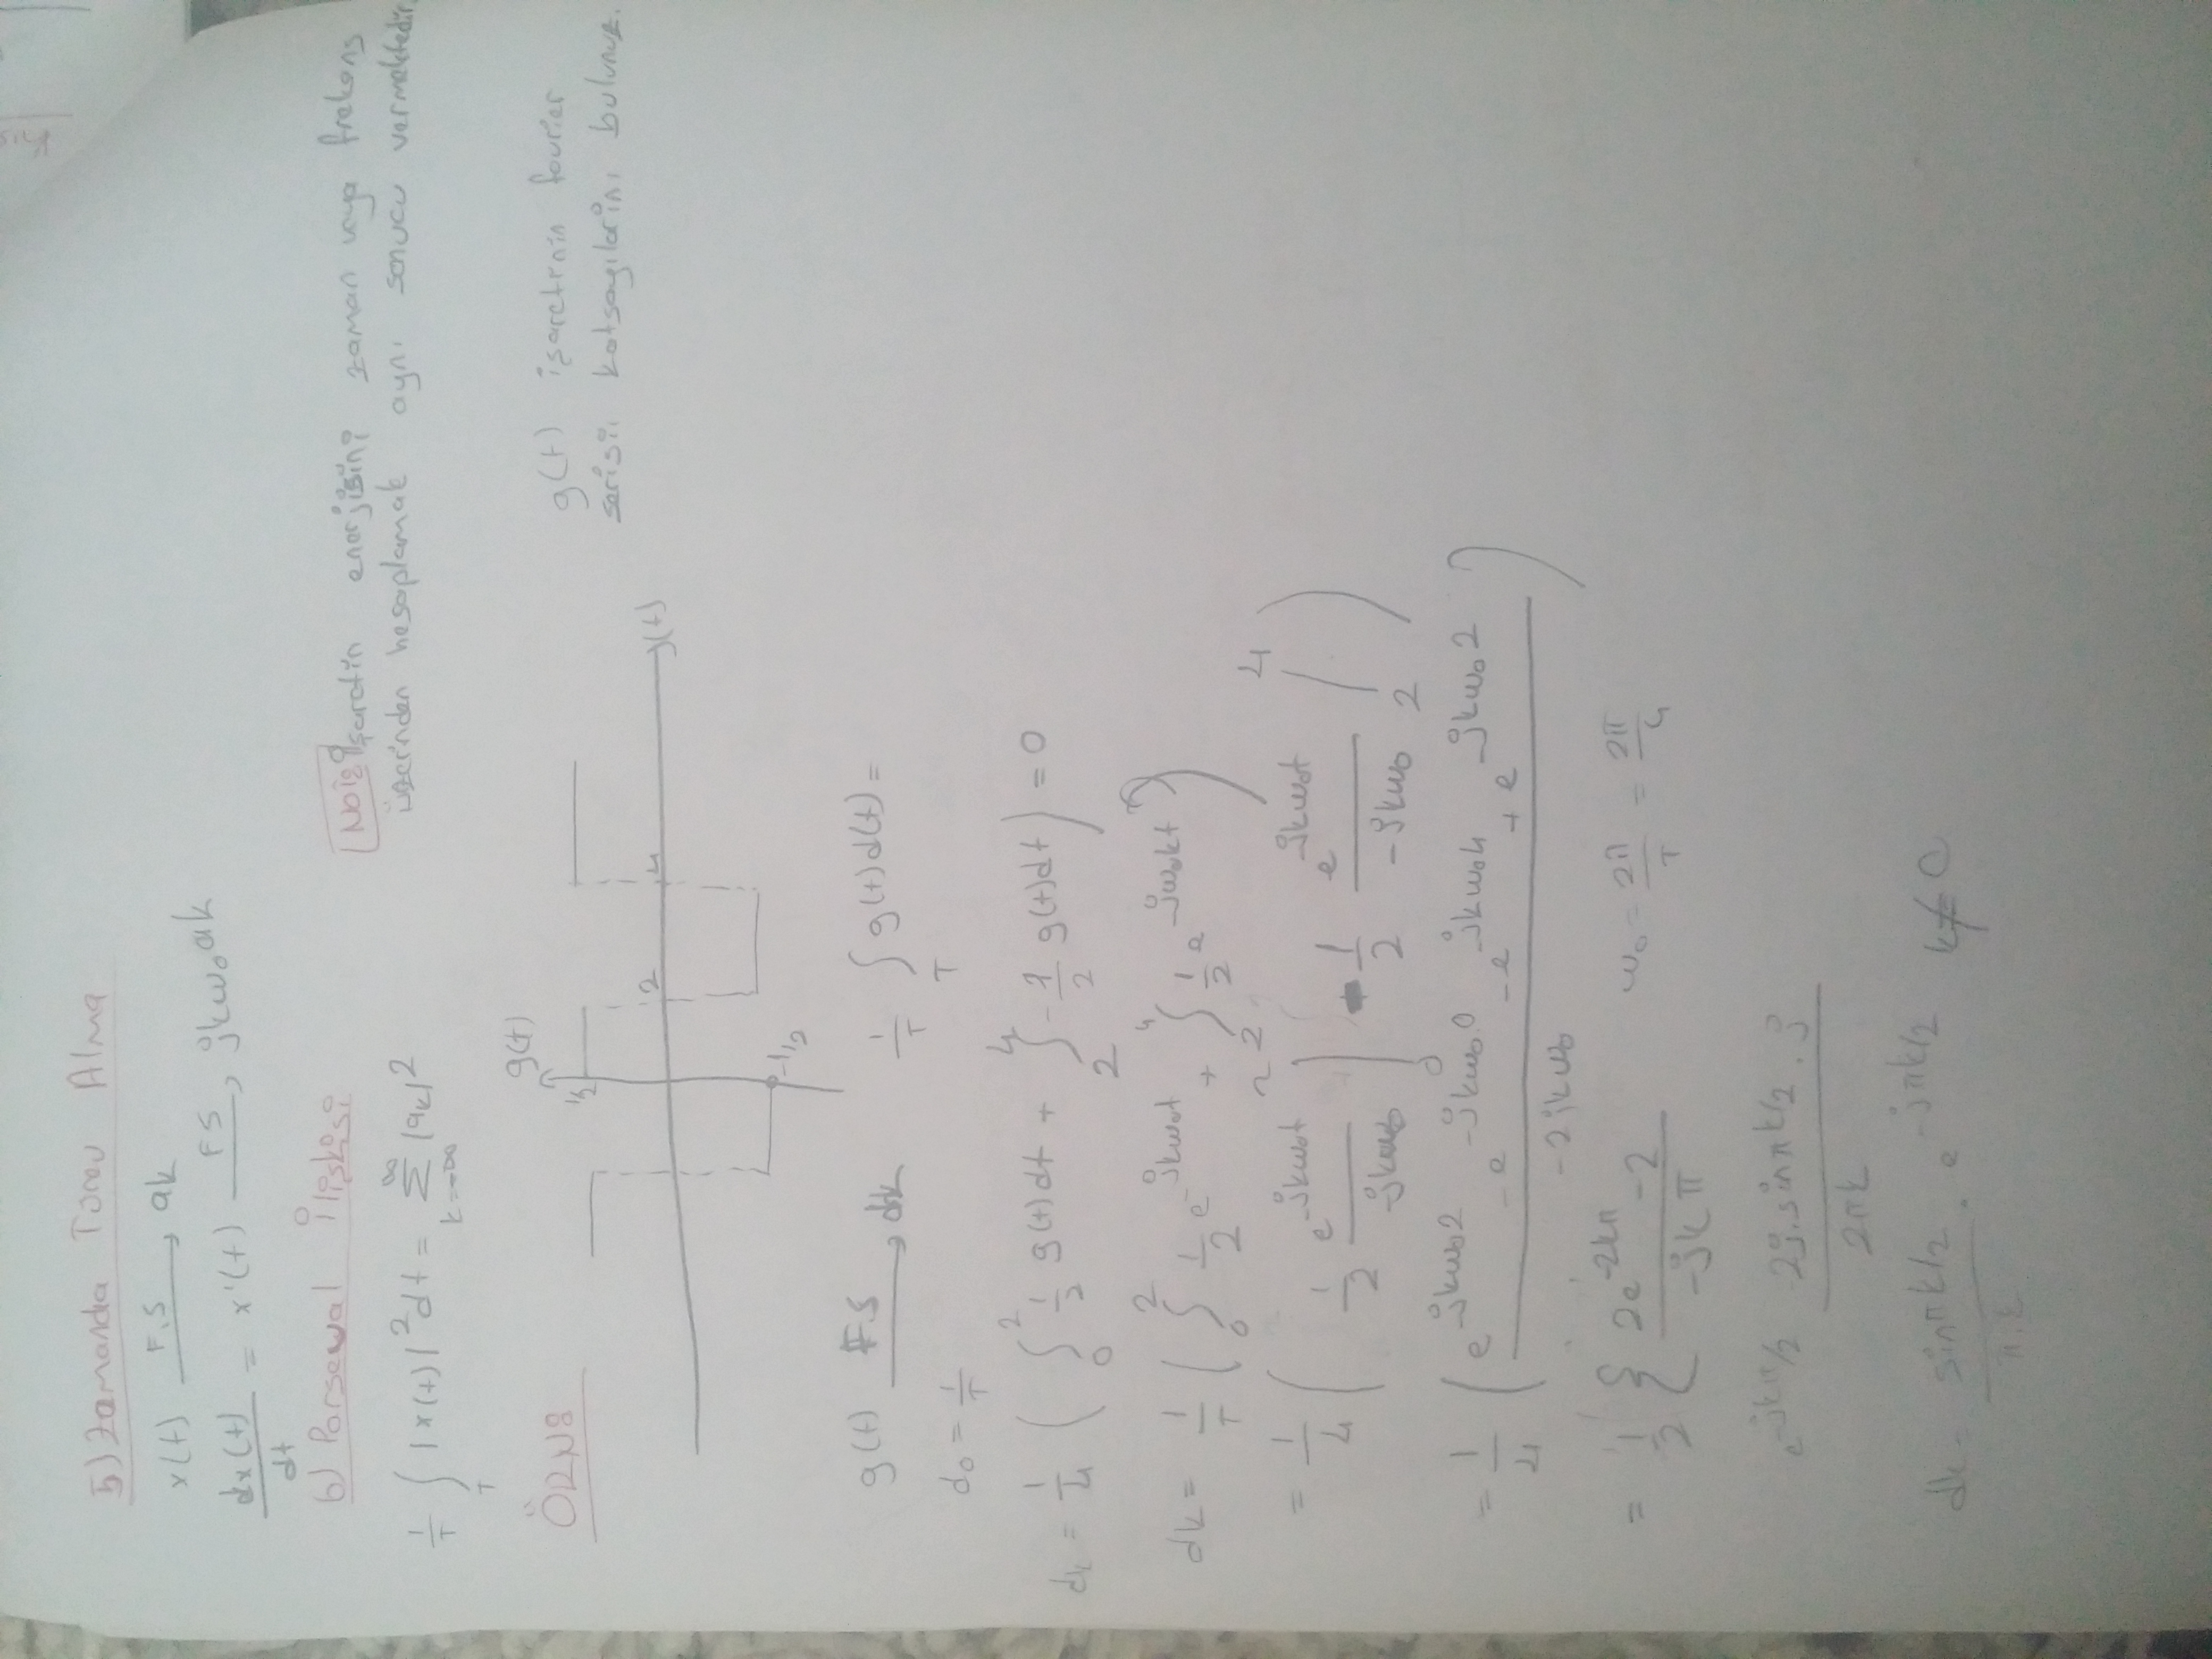 5) Zamanda Türev Alma
x(t) F.S → ak
dx(t)/dt = x'(t) FS → jkω₀ak
6) Parseval İlişkisi
1/T ∫T |x(t)|² dt = Σ k=-∞ ∞ |ak|²
İşaretin enerjisini zaman veya frekans
üzerinden hesaplamak aynı sonucu vermektedir
ÖRN8
g(t)
1/2
2
4
(t)
-1/2
g(t) işaretinin fourier
serisi katsayılarını bulunuz.
g(t) FS → dk
d₀ = 1/T
1/T ∫T g(t)d(t) =
dk = 1/4 ( ∫0 2 1/2 g(t)dt + ∫2 4 -1/2 g(t)dt ) = 0
dk = 1/T ( ∫0 2 1/2 e^-jkω₀t + ∫2 4 1/2 e^-jω₀kt )
= 1/4 ( 1/2 e^-jkω₀t / -jkω₀ | 0 2 - 1/2 e^-jkω₀t / -jkω₀ | 2 4 )
= 1/4 ( e^-jkω₀2 - e^-jkω₀.0 - e^-jkω₀4 + e^-jkω₀2 / -2jkω₀ )
= 1/2 { 2e^-2kπ -2 / -jkπ
ω₀ = 2π/T = 2π/4
e^-jkπ/2 2j.sinπk/2 . j / 2πk
dk = sinπk/2 / π.k . e^-jπk/2 k≠0